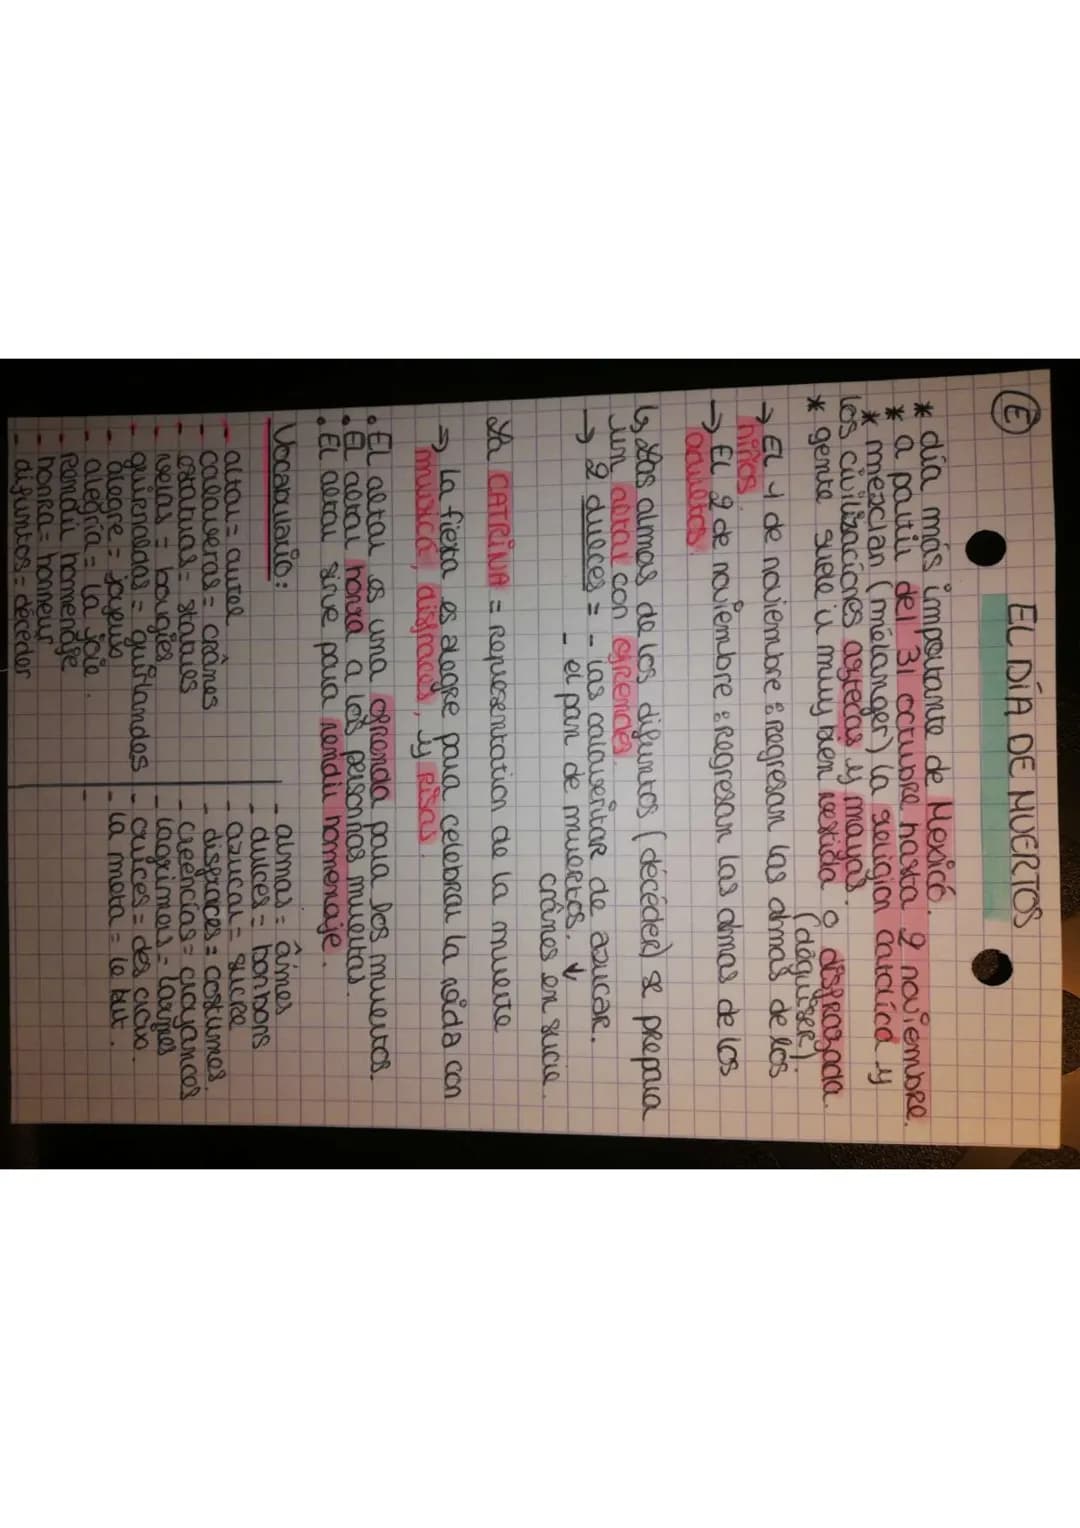 E
EL DÍA DE MUERTOS
* día más importante de Mexicó.
* a partir del 31 octubre hasta 2 noviembre.
* mezclan (mélanger) la religion católica y
los civilizaciónes aztecas y mayas.
* gente suele ir muy bien vestida o disfrazada.
(déguiser).
→ El 1 de noviembre : Regresan las almas de los
niños.
→ El 2 de noviembre : Regresan las almas de los
adultos.
↳ Las almas de los difuntos (décéder) se prepara
un altar con ofrendas.
→ 2 dulces = - las calaveritar de azucar.
- el pan de muertos. ↓
crânes en sucre.
La CATRINA = representation de la muerte
→ la fiesta es alegre para celebrar la vida con
musica, disfraces, y risas.
. El altar es una ofrenda para los muertos.
. El altar honra a los personnas muertas.
. El altar sirve para rendir hommenaje.
Vocabulario:
- altar = autel
- calaveras = crânes
- estatuas = statues
- velas = bougies
- guirnaldas = guirlandes
- alegre = joyeux
- alegría = la joie.
- rendir hommenaje
- honra = honneur
- difuntos = décéder
- almas = âmes
- dulces = bonbons
- azucar = sucre
- disfraces = costumes.
- creencias = croyances
- lagrimas = larmes
- cruces = des croix.
- la meta = le but.
-